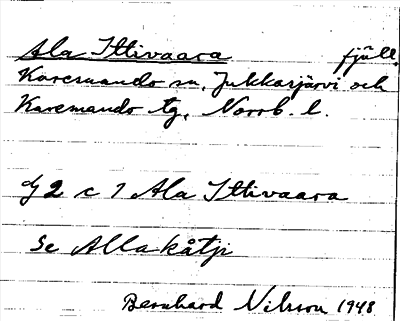 Ala Ittivaara fjäll.
Karesuando sn, Jukkasjärvi och
Karesuando tg, Norrb. l.
dj 2 c 1 Ala Ittivaara
Se Alla kåtji
Bernhard Nilsson 1948